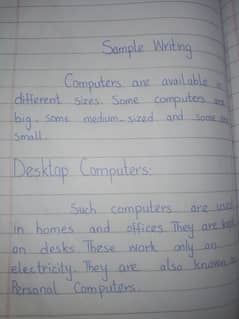 Sample Writing
Computers are available
different sizes. Some computers are
big, some medium-sized and some are
small.
Desktop Computers:
Such computers are used
in homes and offices. They are kept
on desks. These work only on
electricity. They are also known as
Personal Computers.